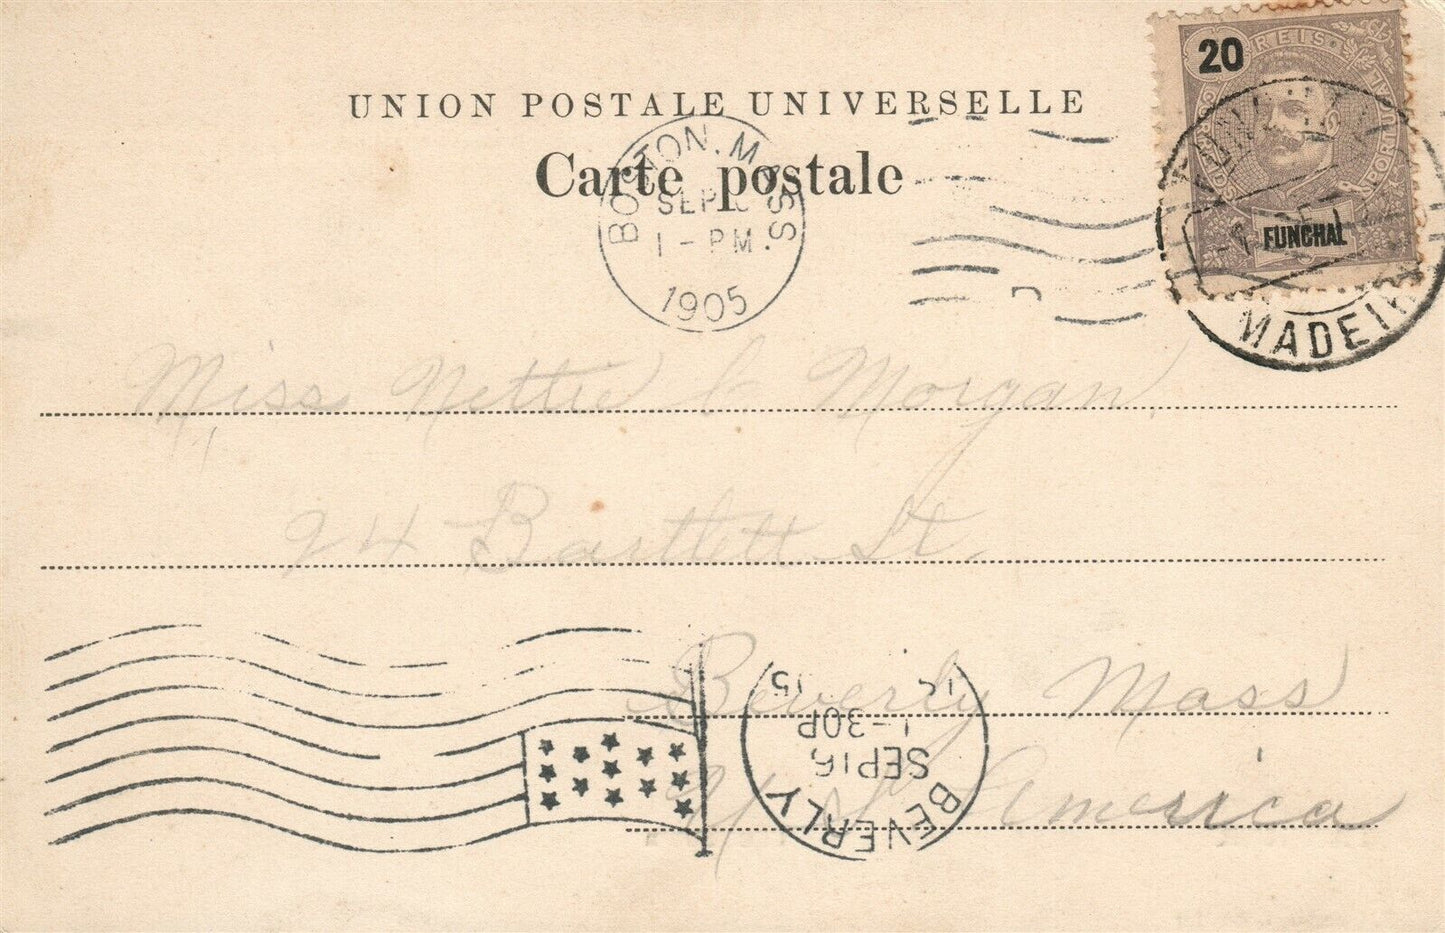 UNION POSTALE UNIVERSELLE
Carte postale
20
REIS
PORTUGAL
FUNCHAL
MADEIR
BOSTON, MASS
SEP
1-PM.
1905
Miss Nettie L. Morgan.
24 Bartlett St.
Beverly Mass
America
BEVERLY
SEP 16
1-30P